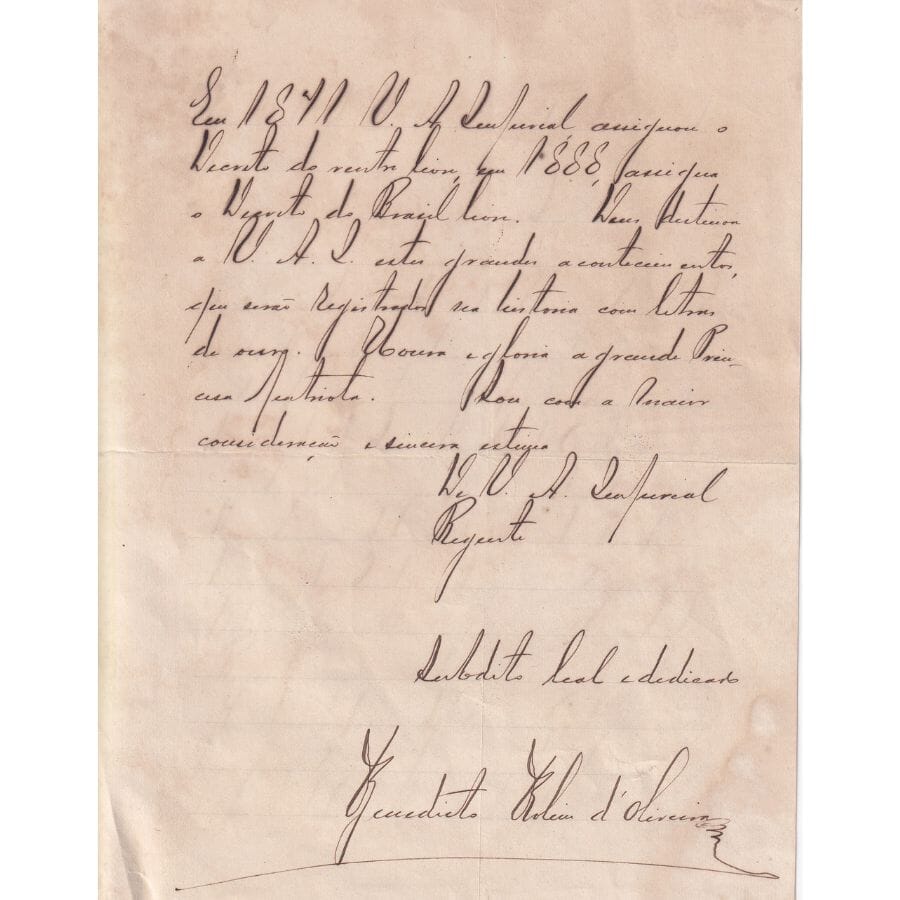 Em 1871 V. A. Imperial, assignou o
Decreto do ventre livre, em 1888, assigna
o Decreto do Brasil livre. Deus destinou
a V. A. I. estes grandes acontecimentos,
que serão registrados na historia com letras
de ouro. Honra e gloria a grande Prin-
cesa Patriota. Sou com a maior
consideração e sincera estima
De V. A. Imperial
Regente
Subdito leal e dedicado
Benedicto d'Oliveira